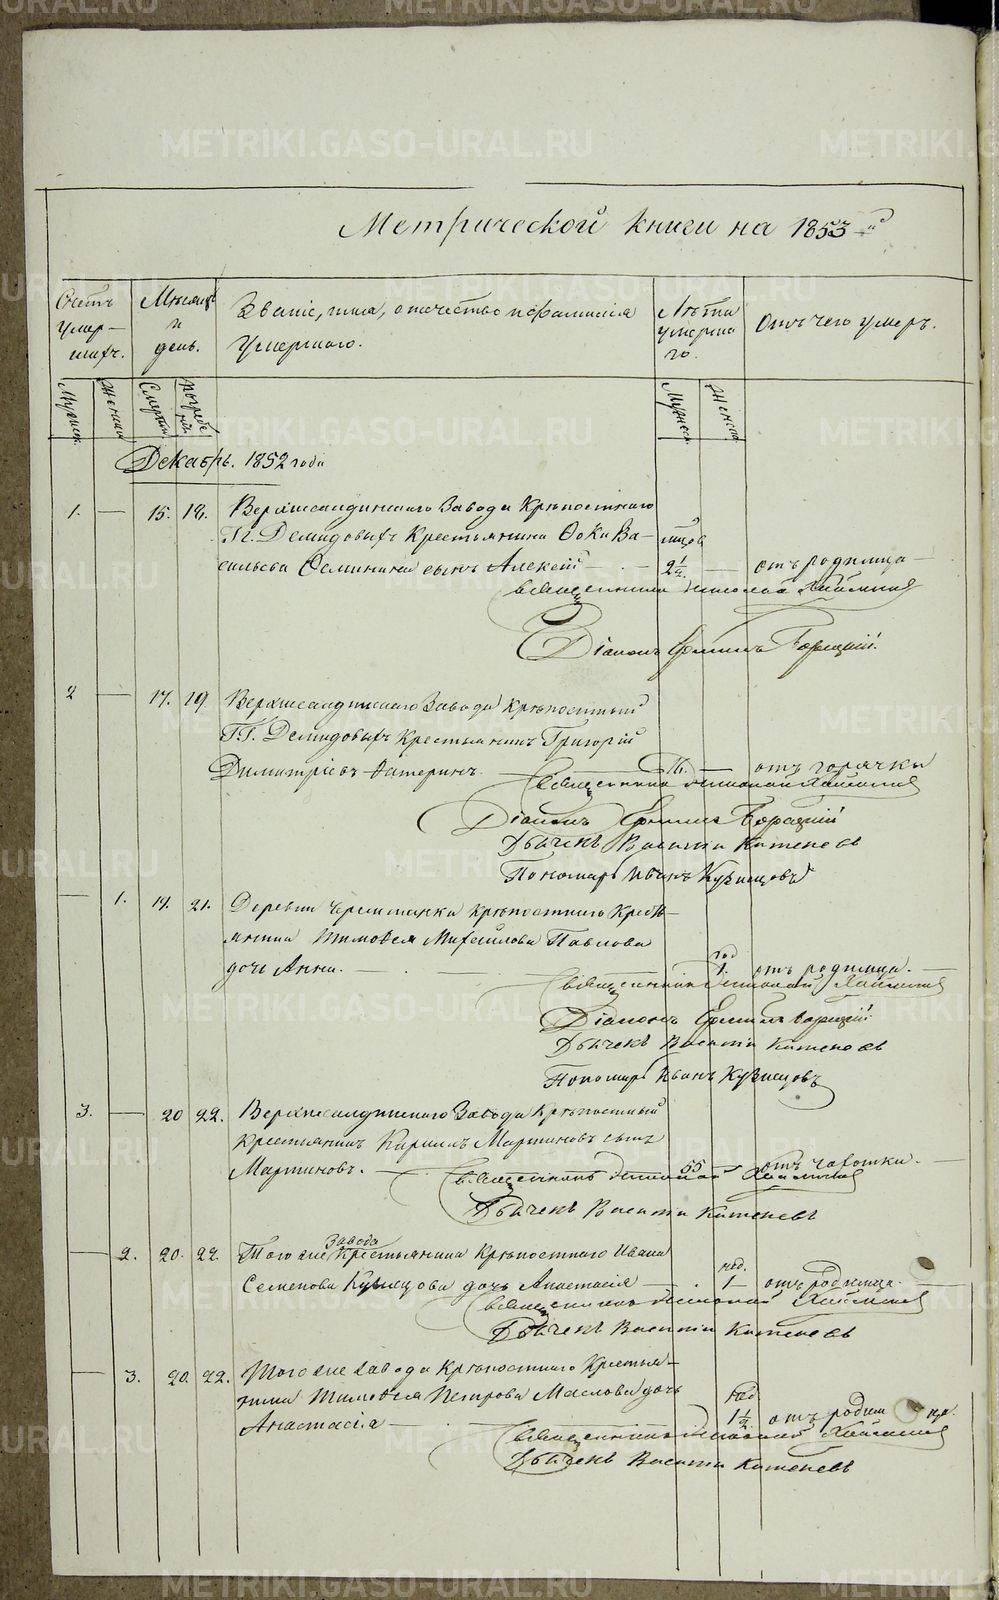 METRIKI.GASO-URAL.RU
Метрической книги на 1853-й
Счетъ умершихъ.
Мѣсяцъ и день.
Званіе, имя, отчество и фамилія умершаго.
Лѣта умершаго.
Отъ чего умеръ.
Мужеск. Женски Смерти погребенія Мужеск. Женска
Декабрь. 1852 года
1. — 15. 18. Верхнесалдинскаго Завода Крѣпостнаго
Гг. Демидовыхъ Крестьянина Фоки Ва-
сильева сынъ Алексѣй — 2 1/2 — отъ родимца —
Священникъ Николай
Діаконъ Ермилъ
2 — 17. 19. Верхнесалдинскаго Завода Крѣпостный
Г.г. Демидовыхъ Крестьянинъ Григорій
Димитріевъ — отъ горячки
Священникъ Николай
Діаконъ Ермилъ
Дьячекъ Василій Катеневъ
Пономарь Иванъ Кузнецовъ
— 1. 19. 21. Деревни Крѣпостнаго Крестья-
нина Тимофея Михайлова Павлова
дочь Анна. — год 1. отъ родимца. —
Священникъ Николай
Діаконъ Ермилъ
Дьячекъ Василій Катеневъ
Пономарь Иванъ Кузнецовъ
3. — 20 22. Верхнесалдинскаго Завода Крѣпостный
Крестьянинъ Кирилъ Мартиновъ сынъ
Мартиновъ. — 55 — отъ чахотки. —
Священникъ Николай
Дьячекъ Василій Катеневъ
— 2. 20. 22. Того же Завода Крестьянина Крѣпостнаго Ивана
Семенова Кузнецова дочь Анастасія — нед. 1 — отъ родимца.
Священникъ Николай
Дьячекъ Василій Катеневъ
— 3. 20. 22. Того же Завода Крѣпостнаго Крестья-
нина Тимофея Петрова Маслова дочь
Анастасія — год 1 1/2. отъ родим
Священникъ Николай
Дьячекъ Василій Катеневъ